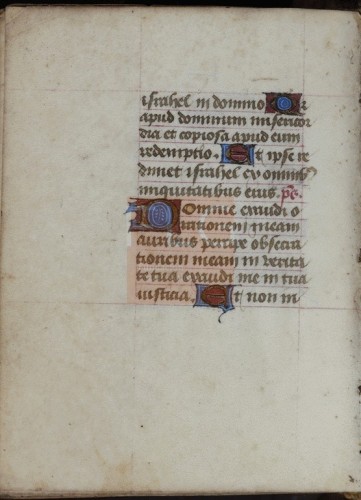 israhel in domino Q r
apud dominum misericor
dia et copiosa apud eum
redemptio. Et ipse re
dimet israhel ex omnib9
iniquitatibus eius. ps.
Domine exaudi o
rationem meam
auribus percipe obsecra
tionem meam in verita
te tua exaudi me in tua
iusticia. Et non in